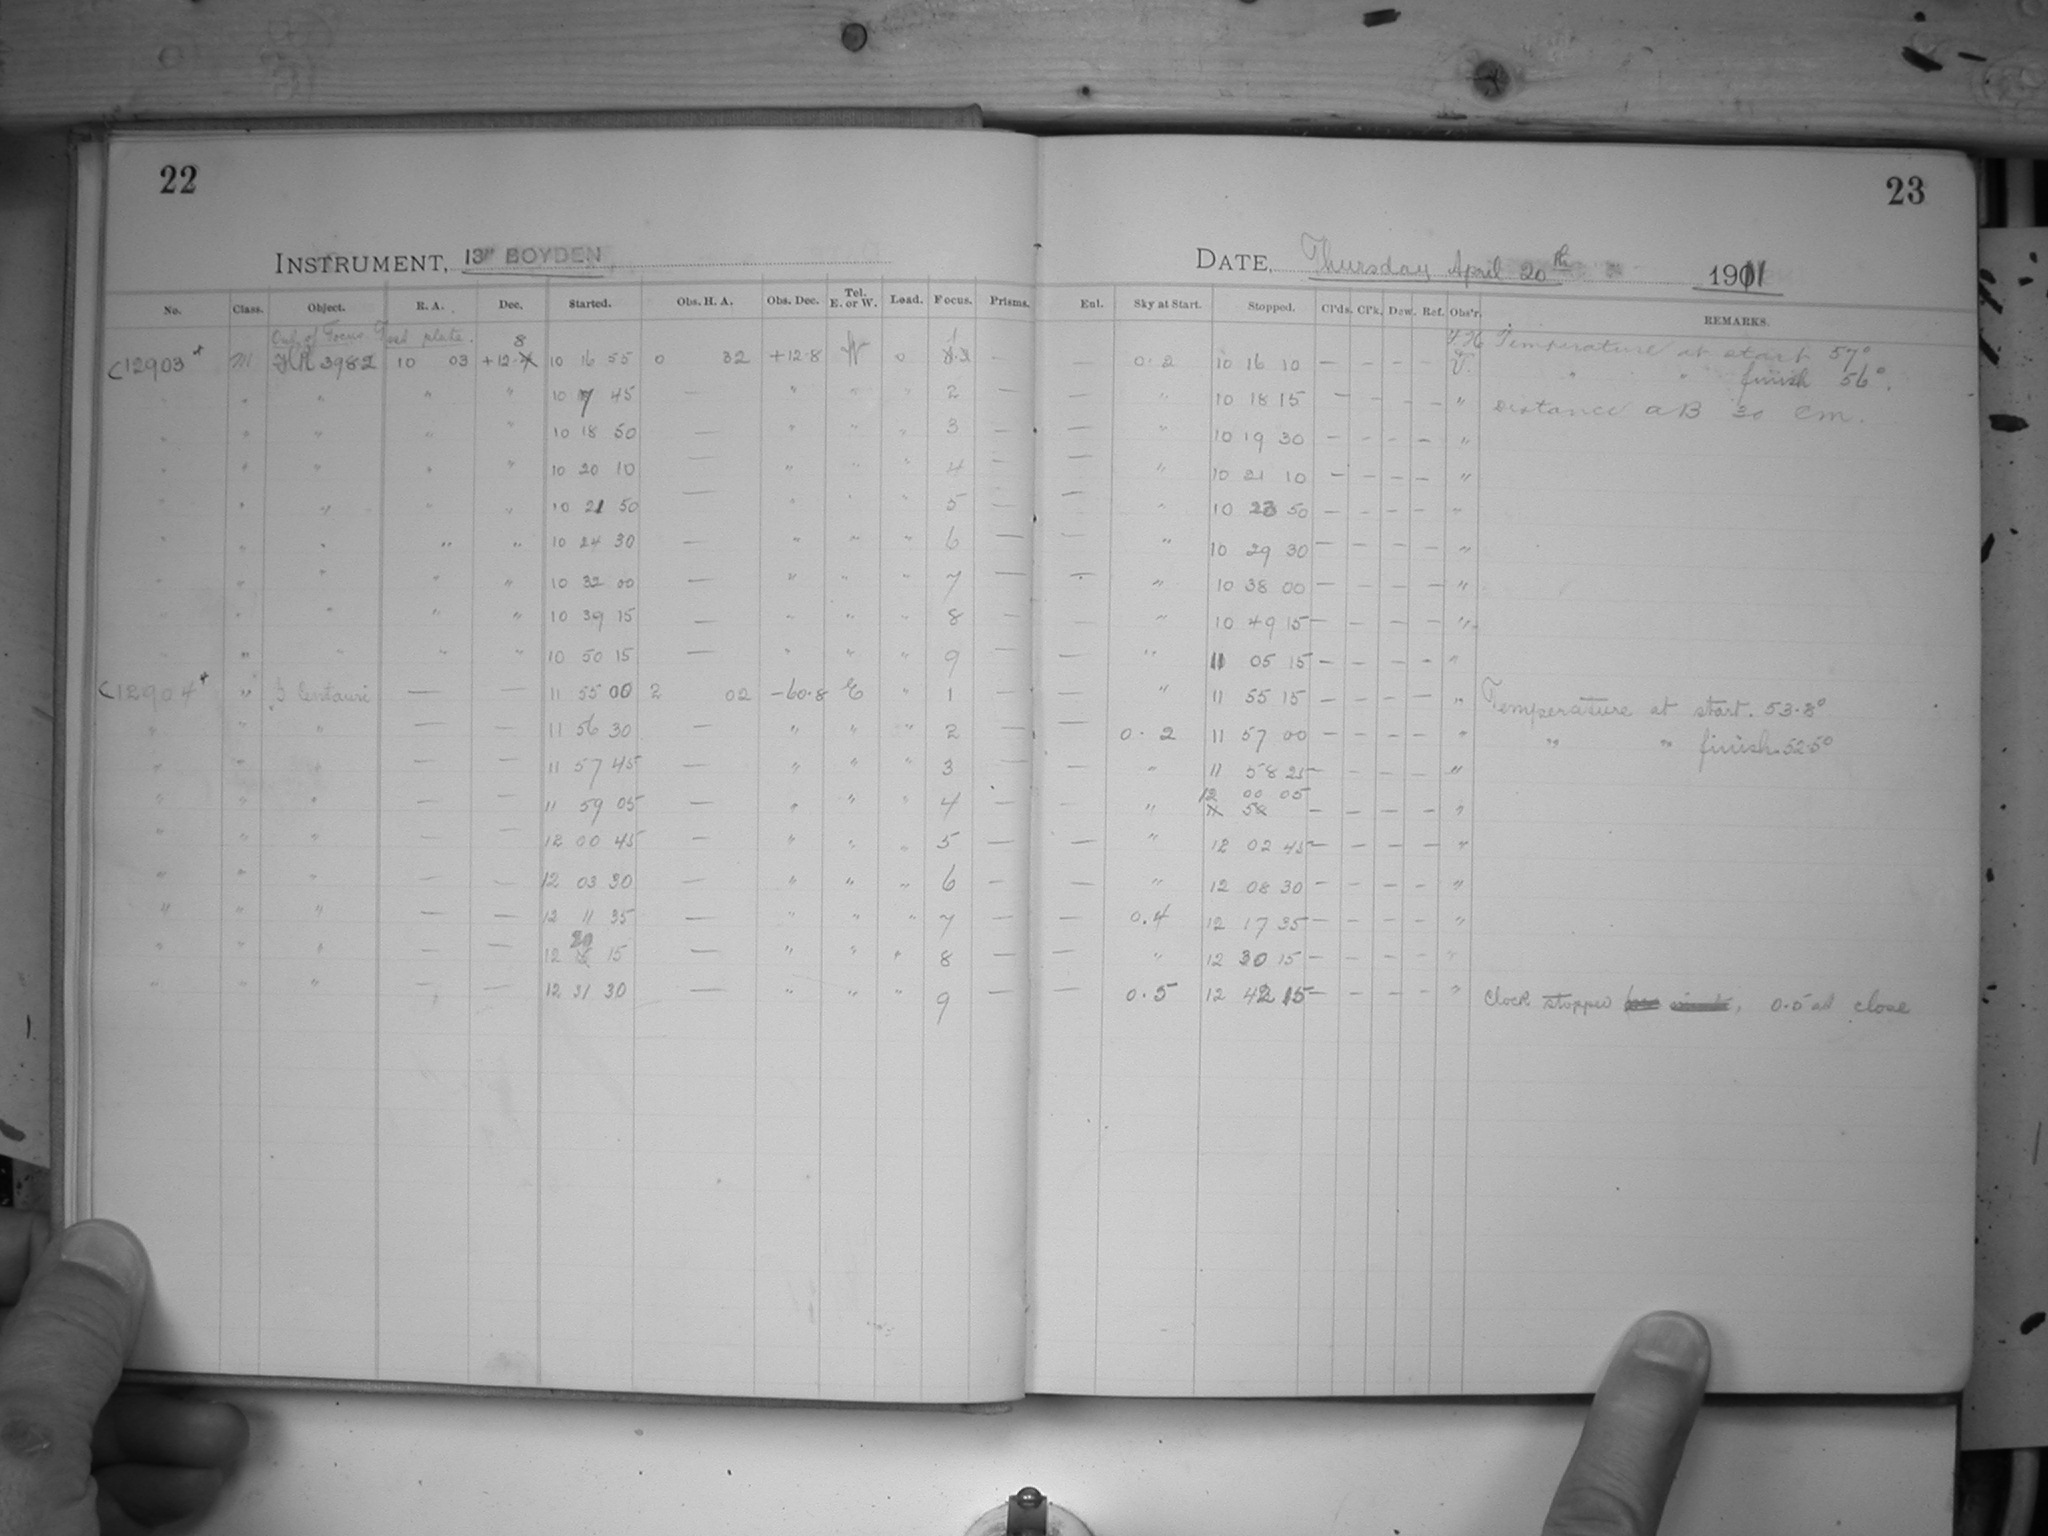 22
23
INSTRUMENT, 13" BOYDEN
DATE, Thursday April 20th 1911
No. Class. Object. R. A. Dec. Started. Obs. H. A. Obs. Dec. Tel. E. or W. Load. Focus. Prisms. Enl. Sky at Start. Stopped. Cl'ds. Cl'k. Dew. Ref. Obs'r. REMARKS.
Out of Focus Test plate.
C12903 M HR 3982 10 03 +12.8 10 16 55 0 32 +12.8 W 0 1 — — 0.2 10 16 10 — — — — Temperature at start 57°
" " " " " 10 17 45 — " " " 2 — — " 10 18 15 — — — — " " " finish 56°.
" " " " " 10 18 50 — " " " 3 — — " 10 19 30 — — — — " Distance aB 30 cm.
" " " " " 10 20 10 — " " " 4 — — " 10 21 10 — — — — "
" " " " " 10 21 50 — " " " 5 — — " 10 23 50 — — — — "
" " " " " 10 24 30 — " " " 6 — — " 10 29 30 — — — — "
" " " " " 10 32 00 — " " " 7 — — " 10 38 00 — — — — "
" " " " " 10 39 15 — " " " 8 — — " 10 49 15 — — — — "
" " " " " 10 50 15 — " " " 9 — — " 11 05 15 — — — — "
C12904 " Centauri — — 11 55 00 2 02 -60.8 E " 1 — — " 11 55 15 — — — — " Temperature at start. 53.8°
" " " — — 11 56 30 — " " " 2 — — 0.2 11 57 00 — — — — " " " finish 52.5°
" " " — — 11 57 45 — " " " 3 — — " 11 58 25 — — — — "
" " " — — 11 59 05 — " " " 4 — — " 12 00 05 — — — — "
" " " — — 12 00 45 — " " " 5 — — " 12 02 45 — — — — "
" " " — — 12 03 30 — " " " 6 — — " 12 08 30 — — — — "
" " " — — 12 11 35 — " " " 7 — — 0.4 12 17 35 — — — — "
" " " — — 12 20 15 — " " " 8 — — " 12 30 15 — — — — "
" " " — — 12 31 30 — " " " 9 — — 0.5 12 42 15 — — — — " Clock stopped, 0.5 at close